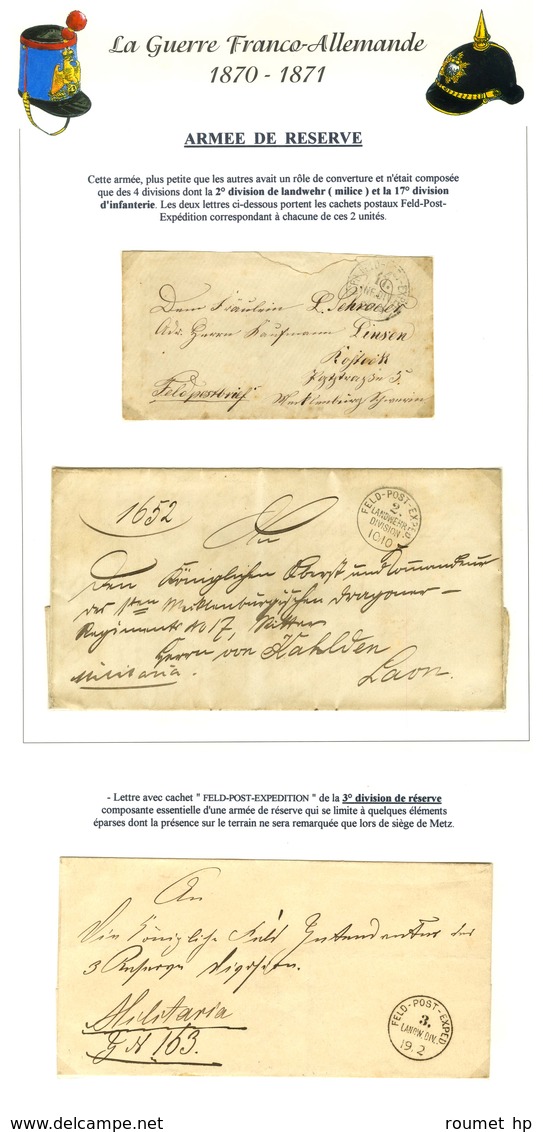 La Guerre Franco-Allemande
1870 - 1871
ARMEE DE RESERVE
Cette armée, plus petite que les autres avait un rôle de converture et n'était composée
que des 4 divisions dont la 2° division de landwehr ( milice ) et la 17° division
d'infanterie. Les deux lettres ci-dessous portent les cachets postaux Feld-Post-
Expédition correspondant à chacune de ces 2 unités.
Dem Fräulein L. Schroeder
Adr. Herrn Kaufmann Linsen
Rostock
5.
Feldpostbrief
Mecklenburg Schwerin
1652
FELD-POST-EXPED.
2.
LANDWEHR-
DIVISION
10/10
An
Den Königlichen Oberst und Commandeur
des 1sten Mecklenburgischen Dragoner-
Regiments No 17, Ritter
Herrn von Kahlden
Militaria.
Laon.
- Lettre avec cachet " FELD-POST-EXPEDITION " de la 3° division de réserve
composante essentielle d'une armée de réserve qui se limite à quelques éléments
éparses dont la présence sur le terrain ne sera remarquée que lors de siège de Metz.
An
Die Königliche Feld Intendantur der
3 Reserve Division.
Militaria
J N 163.
FELD-POST-EXPED
3.
LANDW.DIV.
19/2
roumet hp